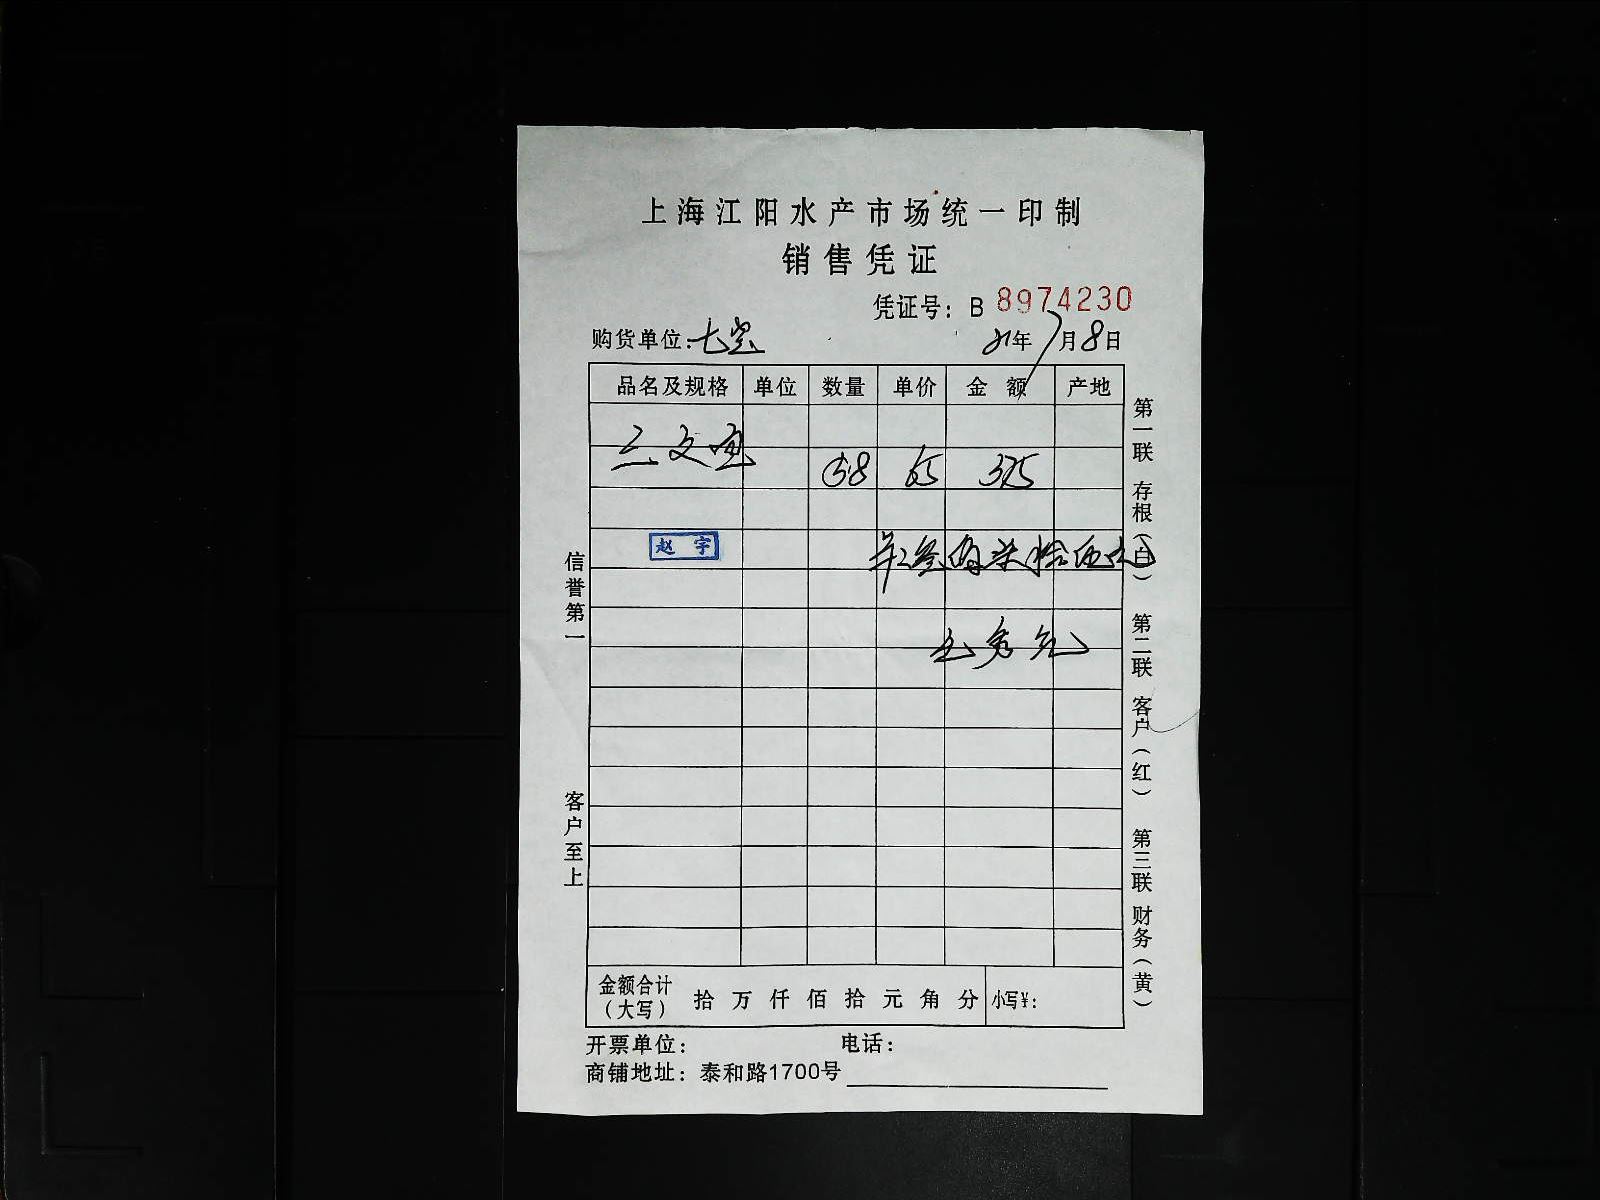 上海江阳水产市场统一印制
销售凭证
凭证号：B 8974230
购货单位：七宝 21年7月8日
品名及规格 单位 数量 单价 金额 产地
三文鱼 65 375
赵宇
叁佰柒拾伍元
信誉第一
客户至上
第一联 存根（白） 第二联 客户（红） 第三联 财务（黄）
金额合计（大写） 拾 万 仟 佰 拾 元 角 分 小写¥：
开票单位： 电话：
商铺地址：泰和路1700号